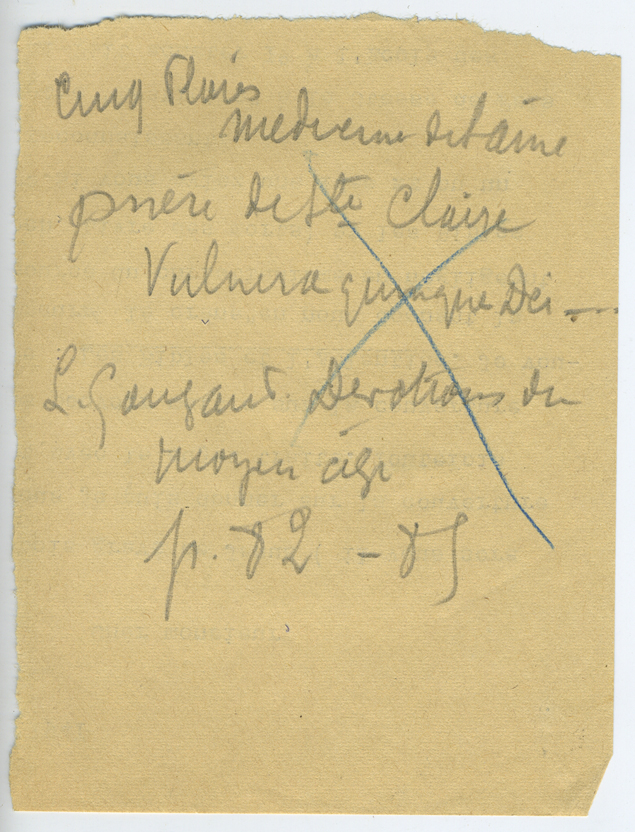 Cinq Plaies
médecine de l'âme
prière de Ste Claire
Vulnera quinque Dei ----
L. Gougaud. Dévotions du
moyen âge
p. 82 - 85